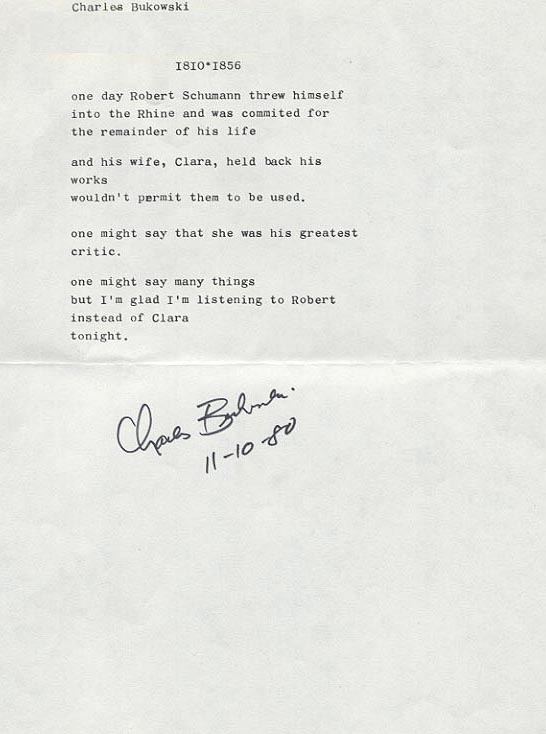 Charles Bukowski
1810*1856
one day Robert Schumann threw himself
into the Rhine and was commited for
the remainder of his life
and his wife, Clara, held back his
works
wouldn't permit them to be used.
one might say that she was his greatest
critic.
one might say many things
but I'm glad I'm listening to Robert
instead of Clara
tonight.
Charles Bukowski.
11-10-80